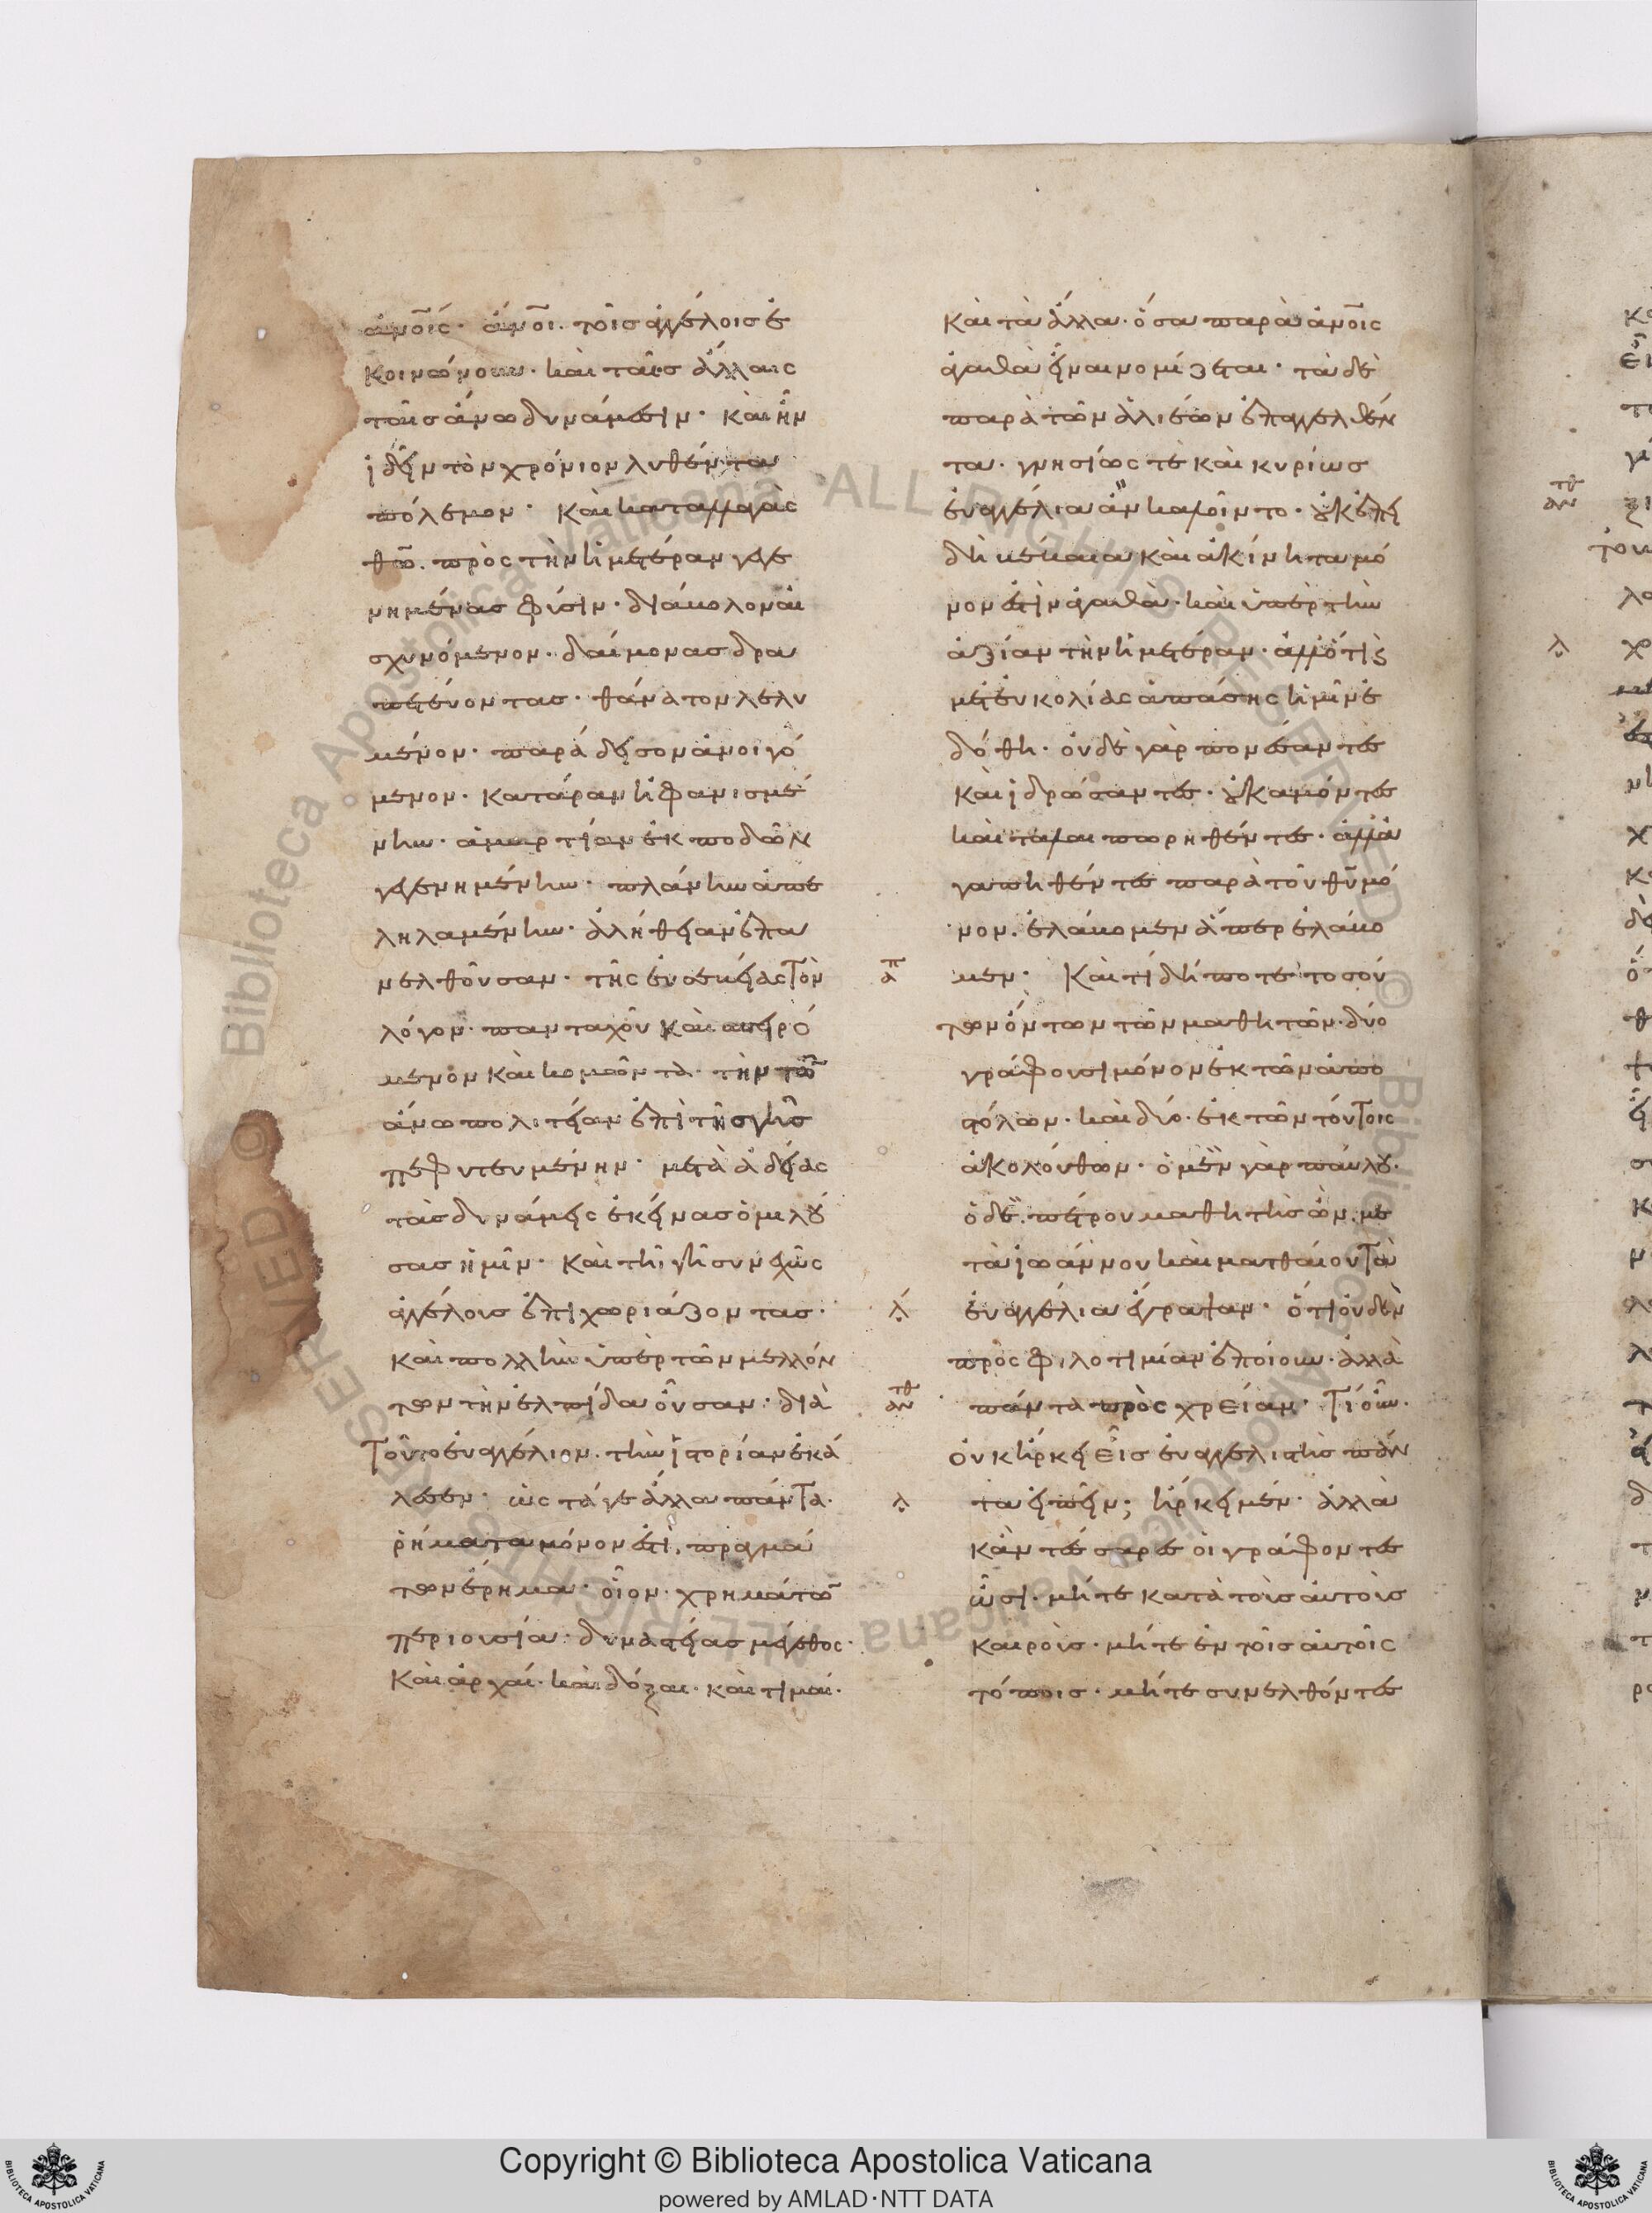 ἀν̅οις· ἀν̅οι· τοῖς ἀγγέλοις ἐ
κοινώνουν· καὶ ταῖς ἄλλαις
ταῖς ἄνω δυνάμεσιν· καὶ ἦν
ἰδεῖν τὸν χρόνιον λυθέντα
πόλεμον· καὶ καταλλαγὰς
θ̅υ· πρὸς τὴν ἡμετέραν γεγε
νημένας φύσιν· διάβολον αἰ
σχυνόμενον· δαίμονας δρα
πετεύοντας· θάνατον λελυ
μένον· παράδεισον ἀνοιγό
μενον· κατάραν ἠφανισμέ
νην· ἁμαρτίαν ἐκποδὼν
γεγενημένην· πλάνην ἀπε
ληλαμένην· ἀλήθειαν ἐπα
νελθοῦσαν· τῆς εὐσεβείας τὸν
λόγον· πανταχοῦ καὶ σπειρό
μενον καὶ κομῶντα· τὴν τῶν
ἄνω πολιτείαν ἐπὶ τῆς γῆς
πεφυτευμένην· μετὰ ἀδείας
τὰς δυνάμεις ἐκείνας ὁμιλού
σας ἡμῖν· καὶ τῆι γῆι συνεχῶς
ἀγγέλους ἐπιχωριάζοντας·
καὶ πολλὴν ὑπὲρ τῶν μελλόν
των τὴν ἐλπίδα οὖσαν· διὰ
τοῦτο εὐαγγέλιον· τὴν ἱστορίαν ἐκά
λεσεν· ὡς τά γε ἄλλα πάντα·
ῥήματα μόνον ἐστὶ, πραγμά
των ἔρημα· οἷον· χρημάτων
περιουσία· δυναστείας μέγεθος·
καὶ ἀρχαί· καὶ δόξαι· καὶ τιμαί·
καὶ τὰ ἄλλα· ὅσα παρὰ ἀν̅οις
ἀγαθὰ εἶναι νομίζεται· τὰ δὲ
παρὰ τῶν ἁλιέων ἐπαγγελθέν
τα· γνησίως τε καὶ κυρίως
εὐαγγέλια ἂν καλοῖντο· οὐκ ἐπει
δὴ βέβαια καὶ ἀκίνητα μό
νον ἐστὶν ἀγαθὰ· καὶ ὑπὲρ τὴν
ἀξίαν τὴν ἡμετέραν· ἀλλ' ὅτι
μετ' εὐκολίας ἁπάσης ἡμῖν ἐ
δόθη· οὐδὲ γὰρ πονέσαντες
καὶ ἱδρώσαντες· οὐ καμόντες
καὶ ταλαιπωρηθέντες· ἀλλ' ἀ
γαπηθέντες παρὰ τοῦ θ̅υ μό
νον· ἐλάβομεν ἅπερ ἐλάβο
ἀπ μεν· Καὶ τί δήποτε τοσού
των ὄντων τῶν μαθητῶν· δύο
γράφουσι μόνον ἐκ τῶν ἀπο
στόλων· καὶ δύο· ἐκ τῶν τούτοις
ἀκολούθων· ὁ μὲν γὰρ παύλου·
ὁ δὲ· πέτρου μαθητὴς ὢν, με
τὰ ἰωάννου καὶ ματθαίου τὰ
λ εὐαγγέλια ἔγραψαν· ὅτι οὐδὲν
πρὸς φιλοτιμίαν ἐποίουν· ἀλλὰ
ἀνθ πάντα πρὸς χρείαν· Τί οὖν·
οὐκ ἤρκει εἷς εὐαγγελιστὴς πάν
λ τα εἰπεῖν; ἤρκει μέν· ἀλλὰ
κἂν τέσσαρες οἱ γράφοντες
ὦσι· μήτε κατὰ τοὺς αὐτοὺς
καιροὺς· μήτε ἐν τοῖς αὐτοῖς
τόποις· μήτε συνελθόντες
Copyright © Biblioteca Apostolica Vaticana
powered by AMLAD·NTT DATA